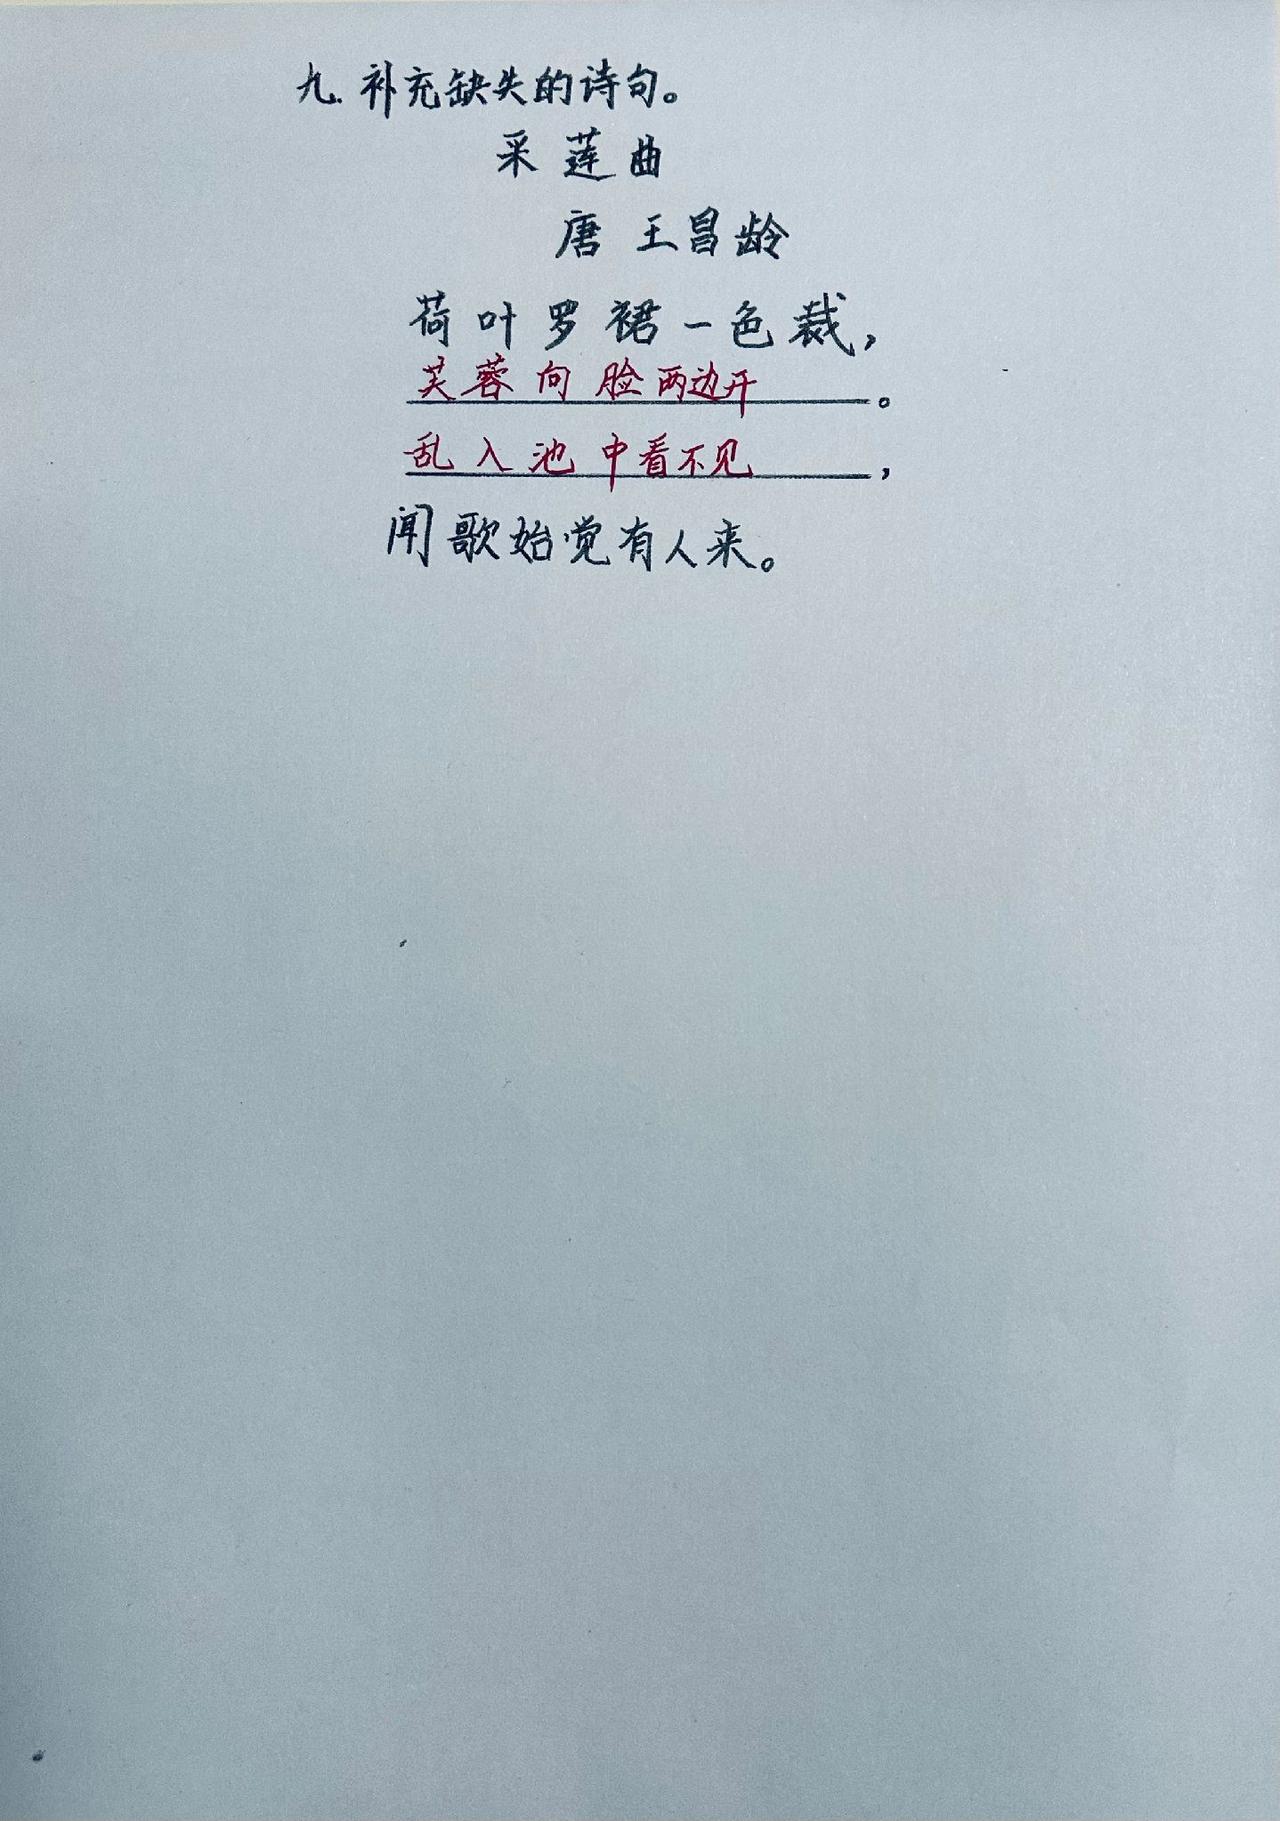 九. 补充缺失的诗句。
采莲曲
唐 王昌龄
荷叶罗裙一色裁,
芙蓉向脸两边开。
乱入池中看不见,
闻歌始觉有人来。